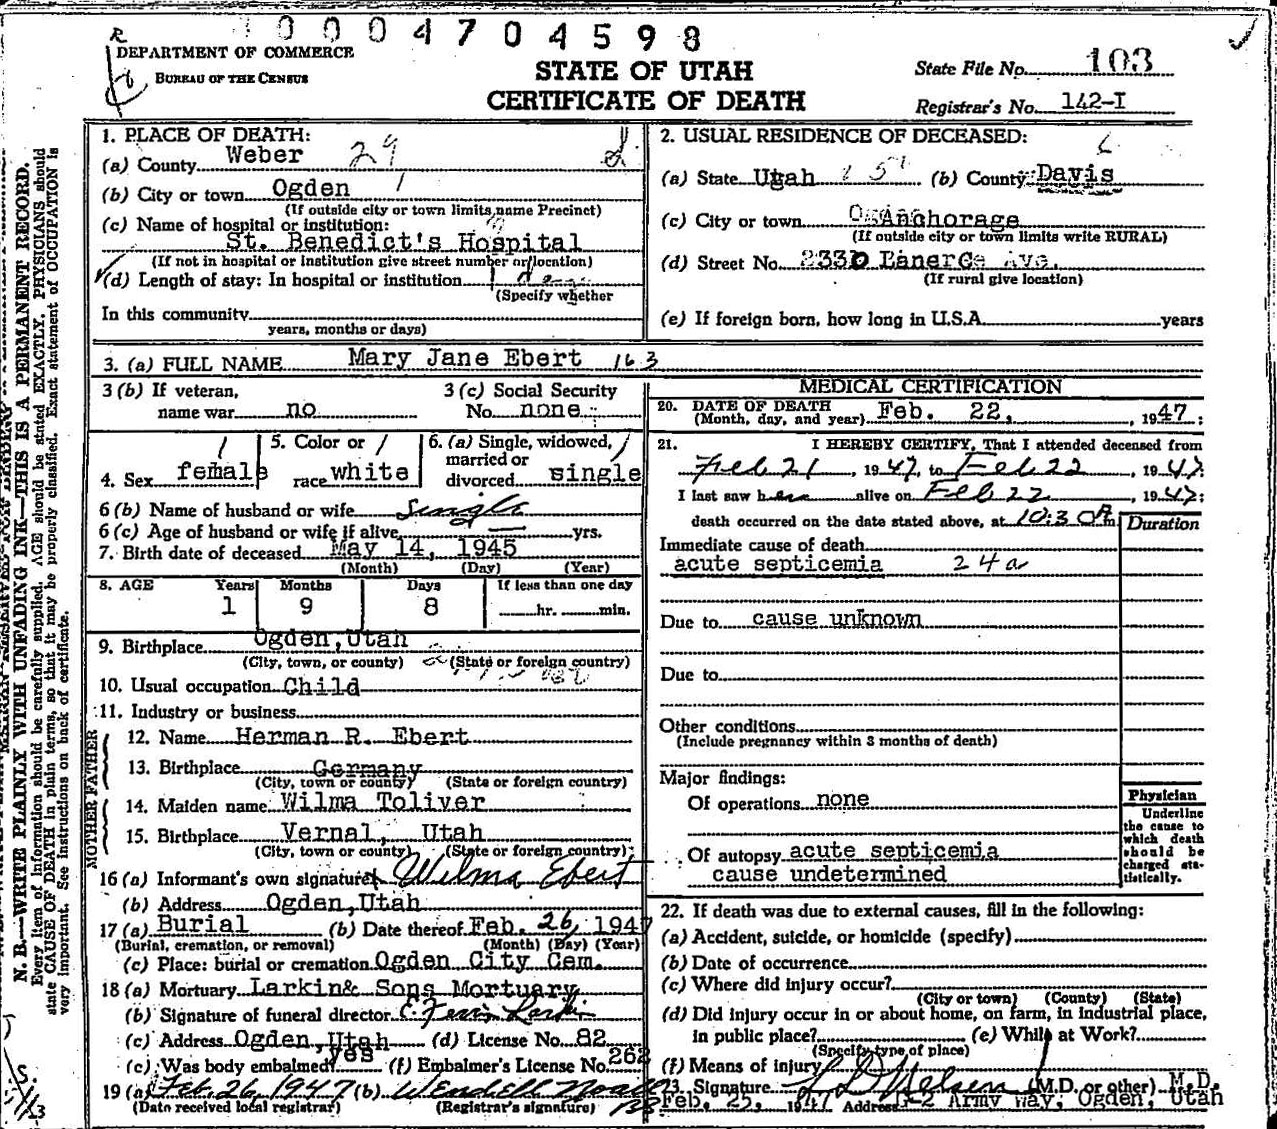 0004704598
DEPARTMENT OF COMMERCE
BUREAU OF THE CENSUS
STATE OF UTAH
CERTIFICATE OF DEATH
State File No. 103
Registrar's No. 142-I
N. B.—WRITE PLAINLY WITH UNFADING INK—THIS IS A PERMANENT RECORD.
Every item of information should be carefully supplied. AGE should be stated EXACTLY. PHYSICIANS should
state CAUSE OF DEATH in plain terms, so that it may be properly classified. Exact statement of OCCUPATION is
very important. See instructions on back of certificate.
1. PLACE OF DEATH:
(a) County Weber 29
(b) City or town Ogden 1
(If outside city or town limits, name Precinct)
(c) Name of hospital or institution:
St. Benedict's Hospital
(If not in hospital or institution give street number or location)
(d) Length of stay: In hospital or institution 1
(Specify whether
In this community
years, months or days)
2. USUAL RESIDENCE OF DECEASED:
(a) State Utah (b) County Davis
(c) City or town Anchorage
(If outside city or town limits write RURAL)
(d) Street No. Ave.
(If rural give location)
(e) If foreign born, how long in U.S.A. years
3. (a) FULL NAME Mary Jane Ebert 163
3 (b) If veteran,
name war no
3 (c) Social Security
No. none
4. Sex female
5. Color or
race white
6. (a) Single, widowed,
married or
divorced single
6 (b) Name of husband or wife Single
6 (c) Age of husband or wife if alive — yrs.
7. Birth date of deceased May 14, 1945
(Month) (Day) (Year)
8. AGE Years Months Days If less than one day
1 9 8 hr. min.
9. Birthplace Ogden, Utah
(City, town, or county) (State or foreign country)
10. Usual occupation Child
11. Industry or business
FATHER
12. Name Herman R. Ebert
13. Birthplace Germany
(City, town or county) (State or foreign country)
MOTHER
14. Maiden name Wilma Toliver
15. Birthplace Vernal, Utah
(City, town or county) (State or foreign country)
16 (a) Informant's own signature x Wilma Ebert
(b) Address Ogden, Utah
17 (a) Burial (b) Date thereof Feb. 26, 1947
(Burial, cremation, or removal) (Month) (Day) (Year)
(c) Place: burial or cremation Ogden City Cem.
18 (a) Mortuary Larkin& Sons Mortuary
(b) Signature of funeral director Larkin
(c) Address Ogden, Utah (d) License No. 82
(e) Was body embalmed? yes (f) Embalmer's License No. 262
19 (a) Feb. 26, 1947 (b) Wendell Noall
(Date received local registrar) (Registrar's signature)
MEDICAL CERTIFICATION
20. DATE OF DEATH
(Month, day, and year) Feb. 22, 1947
21. I HEREBY CERTIFY, That I attended deceased from
Feb 21, 1947, to Feb 22, 1947
I last saw her alive on Feb 22, 1947;
death occurred on the date stated above, at 10:30 A m.
Duration
Immediate cause of death
acute septicemia 24a
Due to cause unknown
Due to
Other conditions
(Include pregnancy within 3 months of death)
Major findings:
Of operations none
Of autopsy acute septicemia
cause undetermined
Physician
Underline
the cause to
which death
should be
charged sta-
tistically.
22. If death was due to external causes, fill in the following:
(a) Accident, suicide, or homicide (specify)
(b) Date of occurrence
(c) Where did injury occur?
(City or town) (County) (State)
(d) Did injury occur in or about home, on farm, in industrial place,
in public place? (e) While at Work?
(Specify type of place)
(f) Means of injury
23. Signature Nelsen (M.D. or other) M.D.
Feb. 25, 1947 Address Army Way, Ogden, Utah